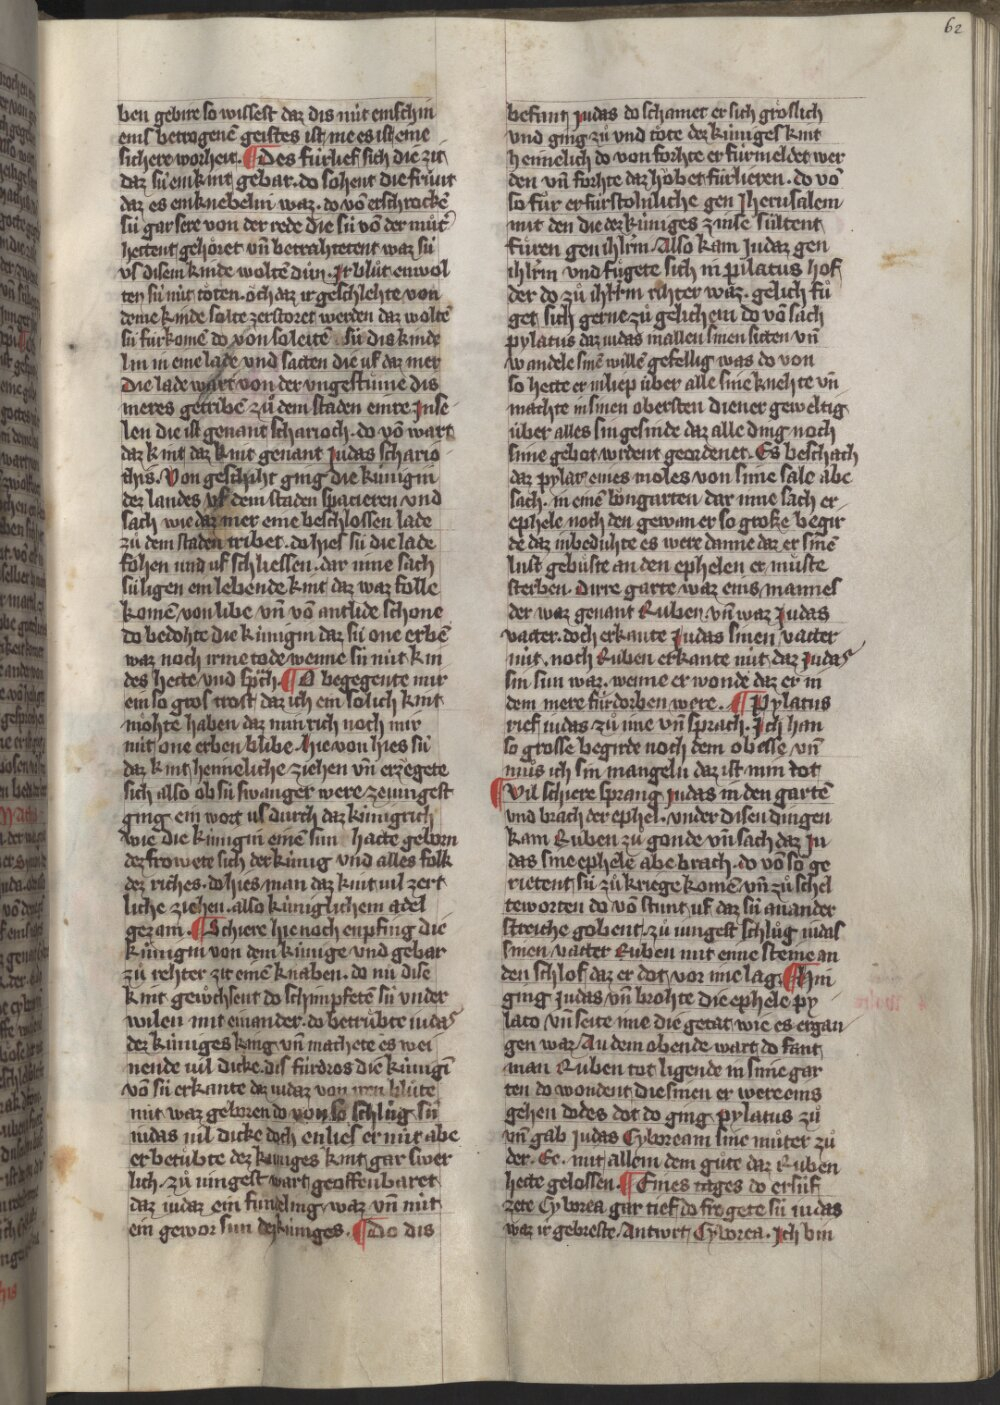 62
ben gebirt so wissest daz dis nüt ein schin
eins betrogenē geistes ist me es ist eine
sichere worheit. ¶ Des fürlief sich die zit
daz sü ein kint gebar. do sohent die fruͦnt
daz es ein knebelin waz. do vō erschrockē
sü gar sere von der rede die sü vō der mūt
hettent gehöret vn̄ betrahtetent waz sü
vs disem kinde woltē duͦn. Ir bluͦt enwol
ten sü nüt toͤten. oͮch daz ir geschlehte von
deme kinde solte zerstoret werden daz woltē
sü fürkomē do von so leitē sü dis kinde
lin in eine lade vnd satten die uf daz mer
die lade wart von der vngestuͤme dis
meres getribē zuͦ dem staden einre Inse
len die ist genant scharioch. do vō wart
daz kint daz kint genant Judas schario
this. Von geschiht ging die künigin
dez landes vf dem staden spacieren vnd
sach wie daz mer eine beschlossen lade
zuͦ dem staden tribet. do hies sü die lade
fohen und uf schliessen. dar inne sach
sü ligen ein lebende kint daz waz folle
komē von libe vn̄ vō antlide schone
do bedohte die künigin daz sü one erbē
waz noch irme tode wenne sü nüt kin
des hette vnd sp̄ch. ¶ O begegente mir
ein so gros trost daz ich ein solich kint
moͤhte haben daz min rich noch mir
nüt one erben blibe. hie von hies sü
daz kint heineliche ziehen vn̄ erzegete
sich also ob sü swanger were ze iungest
ging ein wort us durch daz künigrich
wie die künigin einē sun hatte geborn
dez frowete sich der künig vnd alles folk
dez riches. do hies man daz kint vil zert
liche ziehen. also küniglichem adel
gezam. ¶ Schiere hie noch enpfing die
künigin von dem künige vnd gebar
zuͦ rehter zit einē knaben. do nü dise
kint gewoͤhsent do schimpfetē sü vnder
wilen mit einander. do betruͤbte iudas
dez küniges king vn̄ machete es wei
nende vil dicke. dis fürdros die künigī
vō sü erkante daz iudaz von iren bluͦte
nüt waz geboren do von so schluͦg sü
iudas vil dicke doch en lies er nüt abe
er betuͤbte dez küniges kint gar swer
lich. zuͦ iungest wart geoffenbaret
daz iudaz ein fundeling waz vn̄ nüt
ein gewor sun dez küniges. ¶ Do dis
befant judas do schamet er sich groͤslich
vnd ging zuͦ vnd tote dez küniges kint
heinelich do von forhte er fürmeldet wer
den vn̄ forhte daz hoͮbet fürlieren. do vō
so fuͦr er fürstolnliche gen Jherusalem
mit den die dez küniges zinse sültent
fuͤren gen ihlr̄m. Also kam Judaz gen
ihlr̄m vnd fuͤgete sich in pilatus hof
der do zuͦ ihlr̄m rihter waz. gelich fuͤ
get sich gerne zuͦ gelichem do vō sach
pylatus daz iudas in allen sinen sitten vn̄
wandele sinē willē gefellig was do von
so hette er in liep über alle sine knehte vn̄
machte in sinen obersten diener geweltig
über alles sin gesinde daz alle ding noch
sine gebot wrdent geordenet. Es beschach
daz pylat eines moles von sime sale abe
sach. in einē boͮngarten dar inne sach er
ephele noch den gewan er so groſze begir
de daz in beduhte es were danne daz er sinē
lust gebuͤste an den ephelen er muͤste
sterben. dirre garte waz eins mannes
der waz genant Ruben. vn̄ waz Judas
vatter. doch erkante Judas sinen vatter
nüt. noch Ruben erkante nüt daz Judas
sin sun waz. wenne er wonde daz er in
dem mere fürdorben were. ¶ Pylatus
rief iudas zuͦ ime vn̄ sprach. Ich han
so grosse begirde noch dem obesse vn̄
muͦs ich sin mangeln daz ist min tot
¶ Vil schiere sprang Judas in den gartē
vnd brach der ephel. vnder disen dingen
kam Ruben zuͦ gonde vn̄ sach daz Ju
das sine ephele abe brach. do vō so ge
rietent sü zuͦ kriege komē vn̄ zuͦ schel
teworten do vō stunt uf daz sü anander
streiche gobent. zuͦ iungest schluͦg iudas
sinen vatter Ruben mit eime steine an
den schlof daz er dot vor ime lag. ¶ Hin
ging Judas vn̄ brohte die ephele py
lato vn̄ seite ime die getat wie es ergan
gen waz. An dem obende wart do fant
man Ruben tot ligende in sime gar
ten do wondent die sinen er were eins
gehen dodes dot do ging pylatus zuͦ
vn̄ gab Judas Cyboream sine muͦter zuͦ
der. Ee. mit allem dem guͦte daz Ruben
hette gelossen. ¶ Eines tages do ersüf
zete Cyborea gar tief do fregete sü iudas
waz ir gebreste. Antwrt Cyborea. Ich bin